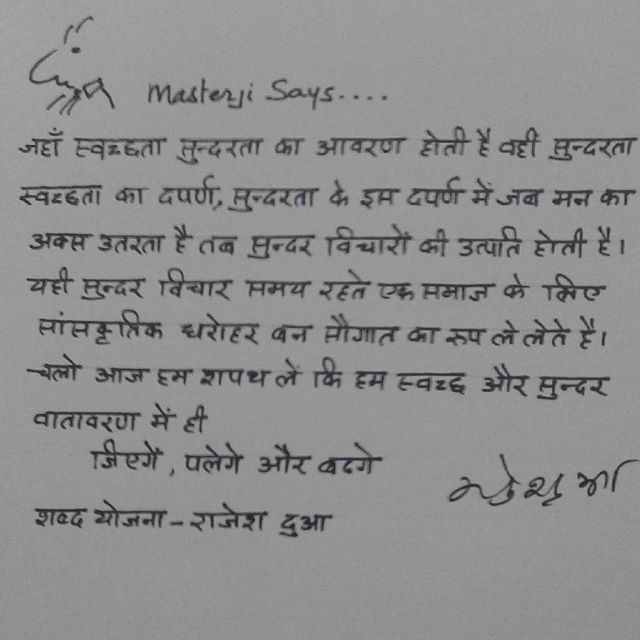 Masterji Says....
जहाँ स्वच्छता सुन्दरता का आवरण होती है वही सुन्दरता
स्वच्छता का दपर्ण, सुन्दरता के इस दपर्ण में जब मन का
अक्स उतरता है तब सुन्दर विचारों की उत्पति होती है।
यही सुन्दर विचार समय रहते एक समाज के लिए
सांसकृतिक धरोहर बन सौगात का रूप ले लेते है।
चलो आज हम शपथ लें कि हम स्वच्छ और सुन्दर
वातावरण में ही
जिएगें, पलेगे और बढगे
शब्द योजना - राजेश दुआ